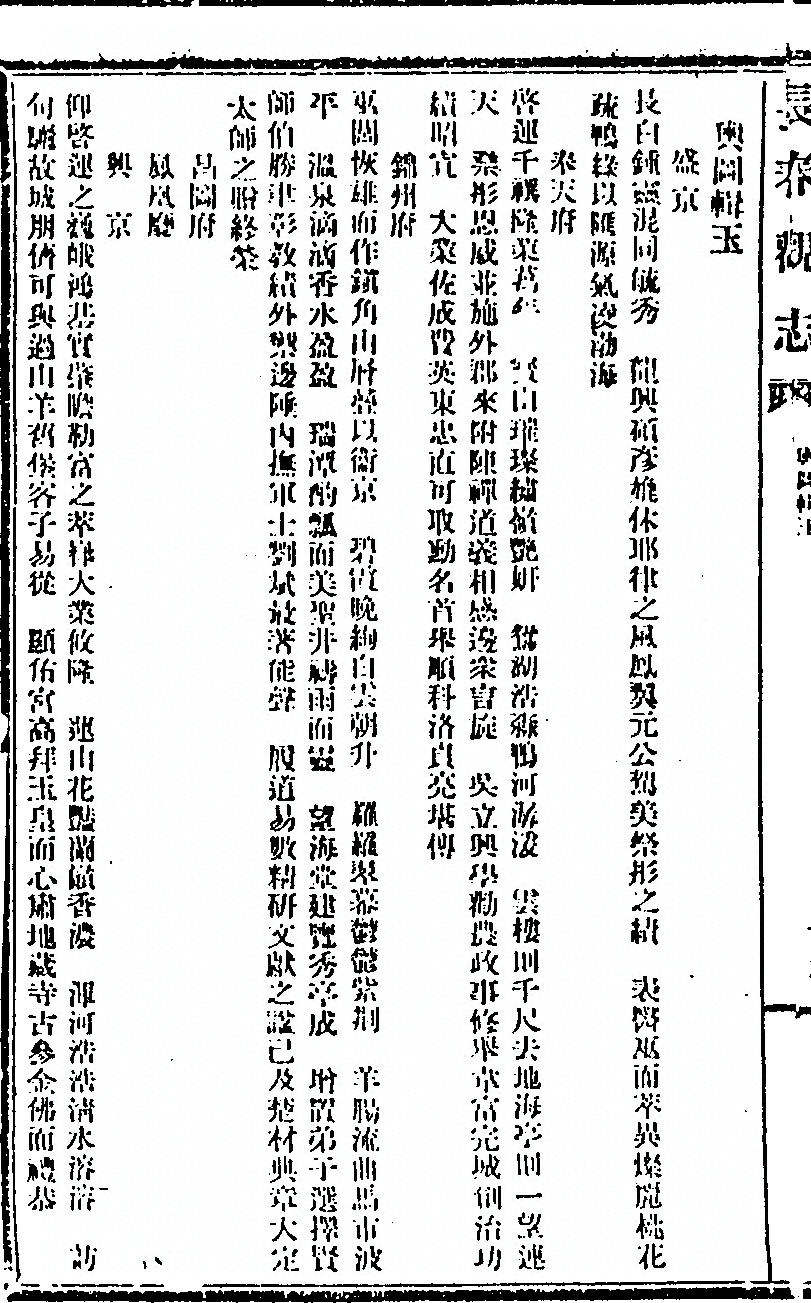 長春觀志
輿圖輯玉
盛京
長白鍾靈混同毓秀　龍興碩彥雄休耶律之風鳳翼元公濟美祭彤之績　表醫巫而萃異燦麗桃花
疏鴨綠以匯源氣凌渤海
奉天府
啓運千禩隆業萬年　白璀璨繡嶺艷妍　浩淼鴨河游泛　雲樓則千尺去地海亭則一望連
天　祭彤恩威並施外郡來附陳禪道義相感邊衆胥旋　吳立興學勸農政事修舉韋富完城創治功
績昭宣　大業佐成費英東忠直可取勳名首舉順科洛貞亮堪傳
錦州府
東關恢雄而作鎮角山層巒以衛京　碧霞晚絢白雲朝升　翠幕紫荆　羊腸流曲馬市波
平　溫泉滴滴香水盈盈　瑞潭酌瓢而美聖井禱雨而靈　望海堂建覽秀亭成　增置弟子選擇賢
師伯勝聿彰教績外禦邊陲內撫軍士劉斌茂著能聲　殷道易數精研文獻之諡已及楚材典章大定
太師之贈終榮
昌圖府
鳳凰廳
興京
仰啓運之巍峨鴻基實肇瞻勒富之萃嵂大業攸隆　蓮山花豔蘭嶺香濃　渾河浩浩清水溶溶　訪
句驪故城朋儕可與過山羊舊堡客子易從　顯佑宮高拜玉皇而心肅地藏寺古參金佛而禮恭